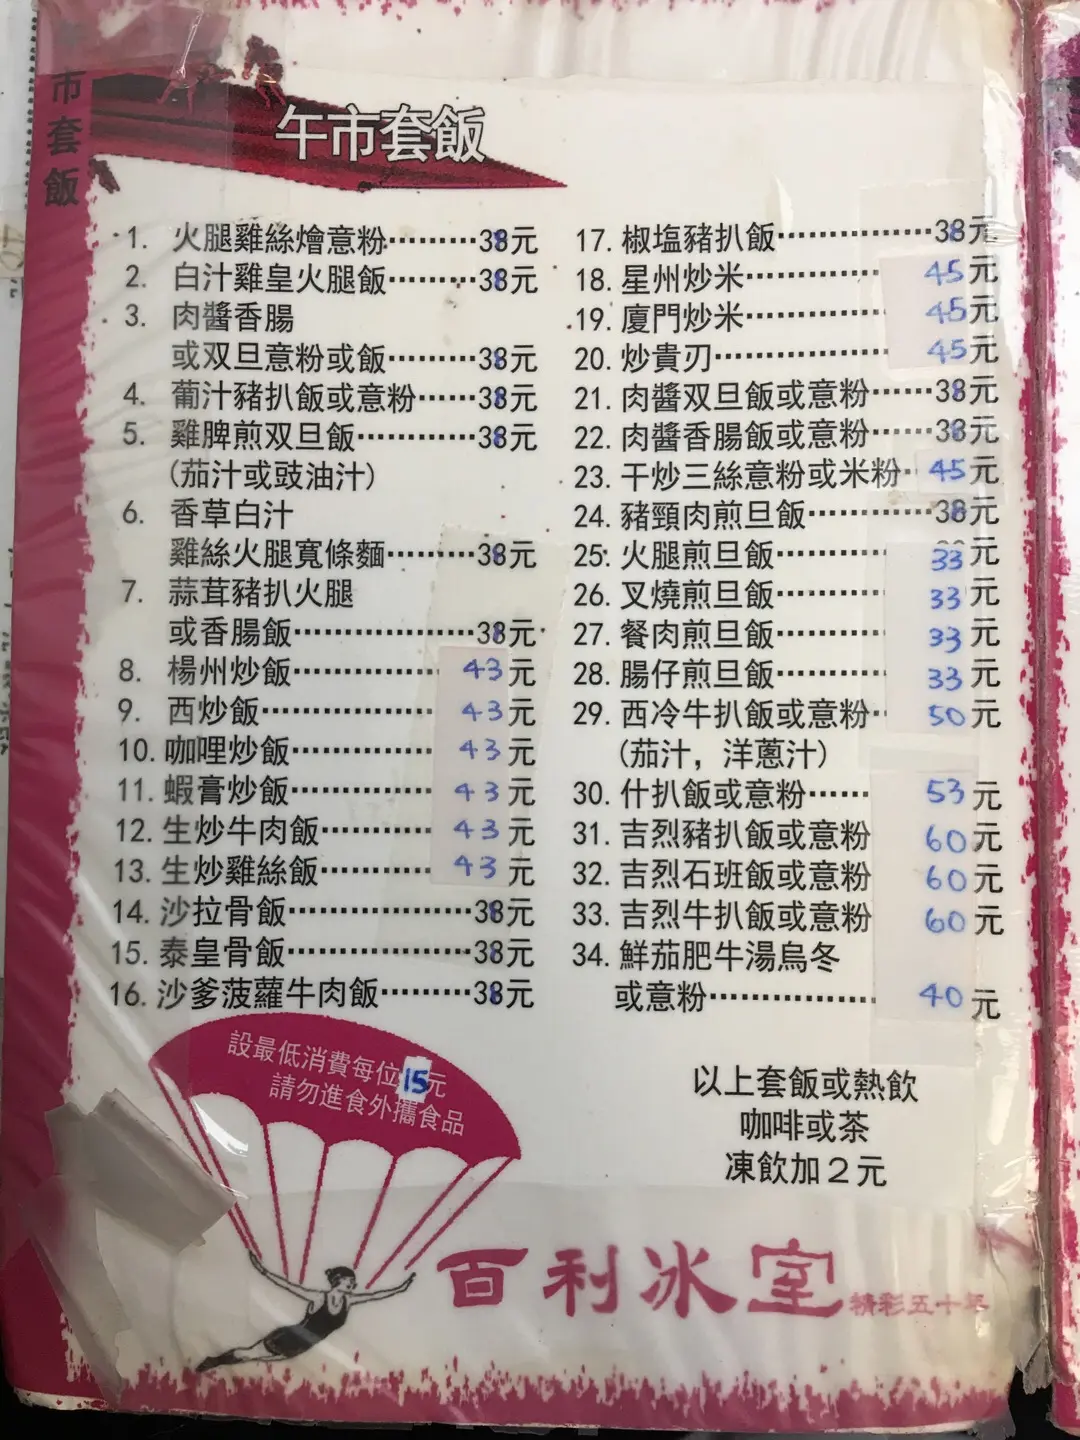 市套飯
午市套飯
1. 火腿雞絲燴意粉………38元
2. 白汁雞皇火腿飯………38元
3. 肉醬香腸
或双旦意粉或飯………38元
4. 葡汁豬扒飯或意粉……38元
5. 雞脾煎双旦飯…………38元
(茄汁或豉油汁)
6. 香草白汁
雞絲火腿寬條麵………38元
7. 蒜茸豬扒火腿
或香腸飯………………38元
8. 楊州炒飯……………43元
9. 西炒飯………………43元
10. 咖哩炒飯……………43元
11. 蝦膏炒飯……………43元
12. 生炒牛肉飯…………43元
13. 生炒雞絲飯…………43元
14. 沙拉骨飯………………38元
15. 泰皇骨飯………………38元
16. 沙爹菠蘿牛肉飯………38元
17. 椒塩豬扒飯……………38元
18. 星州炒米……………45元
19. 廈門炒米……………45元
20. 炒貴刃………………45元
21. 肉醬双旦飯或意粉……38元
22. 肉醬香腸飯或意粉……38元
23. 干炒三絲意粉或米粉·45元
24. 豬頸肉煎旦飯…………38元
25. 火腿煎旦飯…………33元
26. 叉燒煎旦飯…………33元
27. 餐肉煎旦飯…………33元
28. 腸仔煎旦飯…………33元
29. 西冷牛扒飯或意粉··50元
(茄汁，洋蔥汁)
30. 什扒飯或意粉……53元
31. 吉烈豬扒飯或意粉 60元
32. 吉烈石班飯或意粉 60元
33. 吉烈牛扒飯或意粉 60元
34. 鮮茄肥牛湯烏冬
或意粉………………40元
設最低消費每位15元
請勿進食外攜食品
以上套飯或熱飲
咖啡或茶
凍飲加2元
百利冰室
精彩五十年